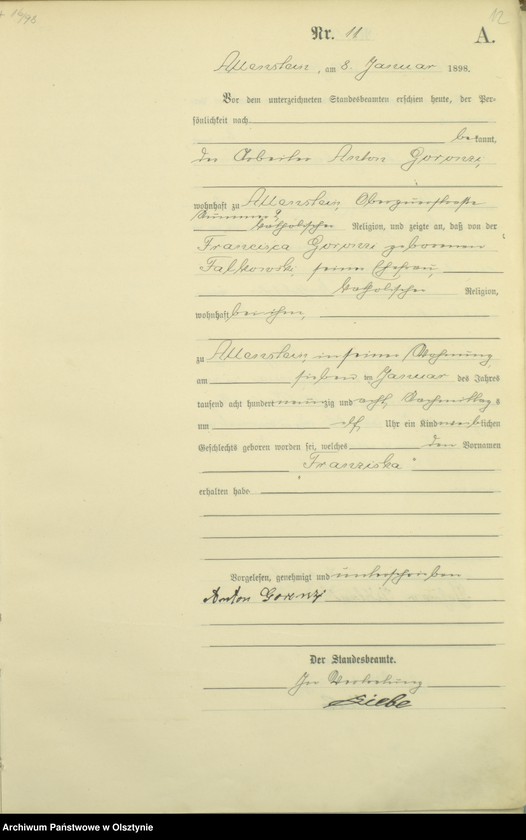 12
Nr. 11
A.
Allenstein, am 8. Januar 1898.
Vor dem unterzeichneten Standesbeamten erschien heute, der Per-
sönlichkeit nach
bekannt,
der Arbeiter Anton Goronzi,
wohnhaft zu Allenstein,
katholischer Religion, und zeigte an, daß von der
Francisca Goronzi geborenen
Falkowski, seiner Ehefrau,
katholischer Religion,
wohnhaft bei ihm,
zu Allenstein, in seiner Wohnung
am sieben ten Januar des Jahres
tausend acht hundert neunzig und acht, Nachmittags
um elf Uhr ein Kind weiblichen
Geschlechts geboren worden sei, welches den Vornamen
Franziska
erhalten habe
Vorgelesen, genehmigt und unterschrieben
Anton Goronzi
Der Standesbeamte.
In Vertretung
Archiwum Państwowe w Olsztynie